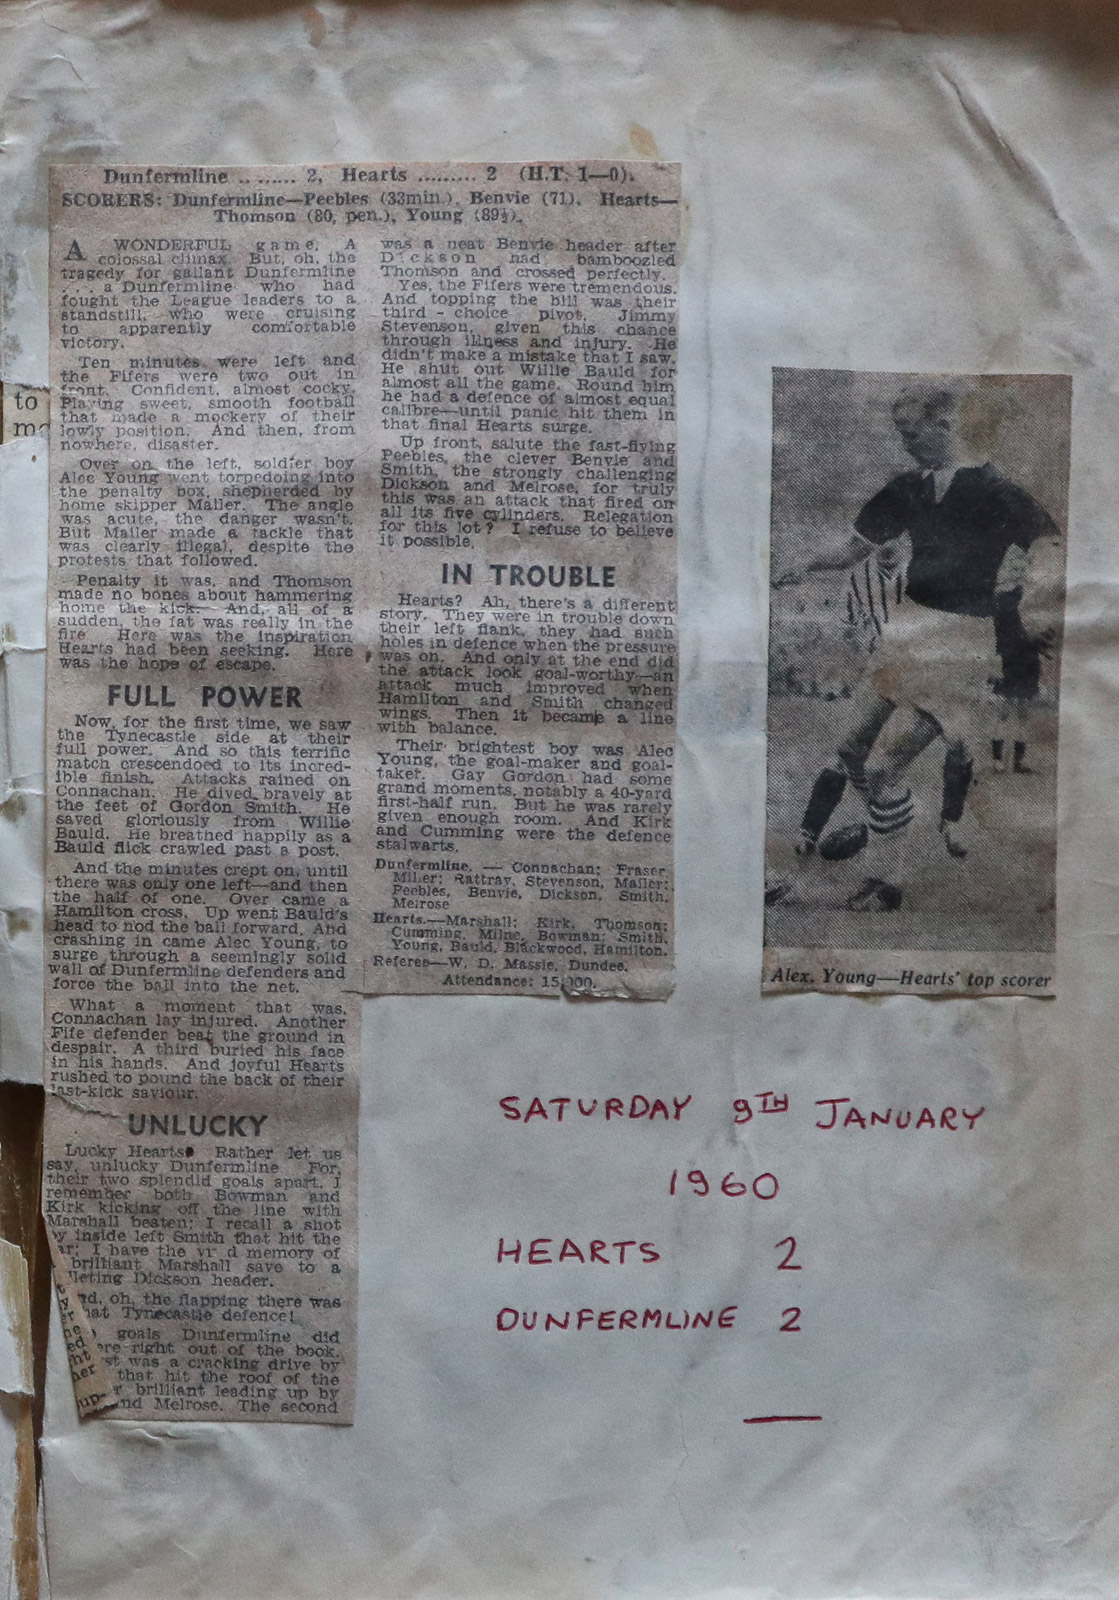 Dunfermline .. ...... 2, Hearts ......... 2 (H.T. 1—0).
SCORERS: Dunfermline—Peebles (33min.), Benvie (71). Hearts—
Thomson (80, pen.), Young (89½).
A WONDERFUL game. A
colossal climax. But, oh, the
tragedy for gallant Dunfermline
. . . a Dunfermline who had
fought the League leaders to a
standstill, who were cruising
to apparently comfortable
victory.
Ten minutes were left and
the Fifers were two out in
front. Confident, almost cocky.
Playing sweet, smooth football
that made a mockery of their
lowly position. And then, from
nowhere, disaster.
Over on the left, soldier boy
Alec Young went torpedoing into
the penalty box, shepherded by
home skipper Mailer. The angle
was acute, the danger wasn't.
But Mailer made a tackle that
was clearly illegal, despite the
protests that followed.
Penalty it was, and Thomson
made no bones about hammering
home the kick. And, all of a
sudden, the fat was really in the
fire. Here was the inspiration
Hearts had been seeking. Here
was the hope of escape.
FULL POWER
Now, for the first time, we saw
the Tynecastle side at their
full power. And so this terrific
match crescendoed to its incred-
ible finish. Attacks rained on
Connachan. He dived bravely at
the feet of Gordon Smith. He
saved gloriously from Willie
Bauld. He breathed happily as a
Bauld flick crawled past a post.
And the minutes crept on, until
there was only one left—and then
the half of one. Over came a
Hamilton cross. Up went Bauld's
head to nod the ball forward. And
crashing in came Alec Young, to
surge through a seemingly solid
wall of Dunfermline defenders and
force the ball into the net.
What a moment that was.
Connachan lay injured. Another
Fife defender beat the ground in
despair. A third buried his face
in his hands. And joyful Hearts
rushed to pound the back of their
last-kick saviour.
UNLUCKY
Lucky Hearts? Rather let us
say, unlucky Dunfermline. For,
their two splendid goals apart, I
remember both Bowman and
Kirk kicking off the line with
Marshall beaten; I recall a shot
by inside left Smith that hit the
ar; I have the memory of
brilliant Marshall save to a
lleting Dickson header.
nd, oh, the flapping there was
hat Tynecastle defence!
goals Dunfermline did
ere right out of the book.
st was a cracking drive by
that hit the roof of the
r brilliant leading up by
nd Melrose. The second
was a neat Benvie header after
Dickson had bamboozled
Thomson and crossed perfectly.
Yes, the Fifers were tremendous.
And topping the bill was their
third - choice pivot, Jimmy
Stevenson, given this chance
through illness and injury. He
didn't make a mistake that I saw.
He shut out Willie Bauld for
almost all the game. Round him
he had a defence of almost equal
calibre—until panic hit them in
that final Hearts surge.
Up front, salute the fast-flying
Peebles, the clever Benvie and
Smith, the strongly challenging
Dickson and Melrose, for truly
this was an attack that fired on
all its five cylinders. Relegation
for this lot? I refuse to believe
it possible.
IN TROUBLE
Hearts? Ah, there's a different
story. They were in trouble down
their left flank, they had such
holes in defence when the pressure
was on. And only at the end did
the attack look goal-worthy—an
attack much improved when
Hamilton and Smith changed
wings. Then it became a line
with balance.
Their brightest boy was Alec
Young, the goal-maker and goal-
taker. Gay Gordon had some
grand moments, notably a 40-yard
first-half run. But he was rarely
given enough room. And Kirk
and Cumming were the defence
stalwarts.
Dunfermline. — Connachan; Fraser,
Miller; Rattray, Stevenson, Mailer;
Peebles, Benvie, Dickson, Smith,
Melrose
Hearts.—Marshall; Kirk, Thomson;
Cumming, Milne, Bowman; Smith,
Young, Bauld, Blackwood, Hamilton.
Referee—W. D. Massie, Dundee.
Attendance: 15,000.
to
Alex. Young—Hearts' top scorer
SATURDAY 9TH JANUARY
1960
HEARTS 2
DUNFERMLINE 2